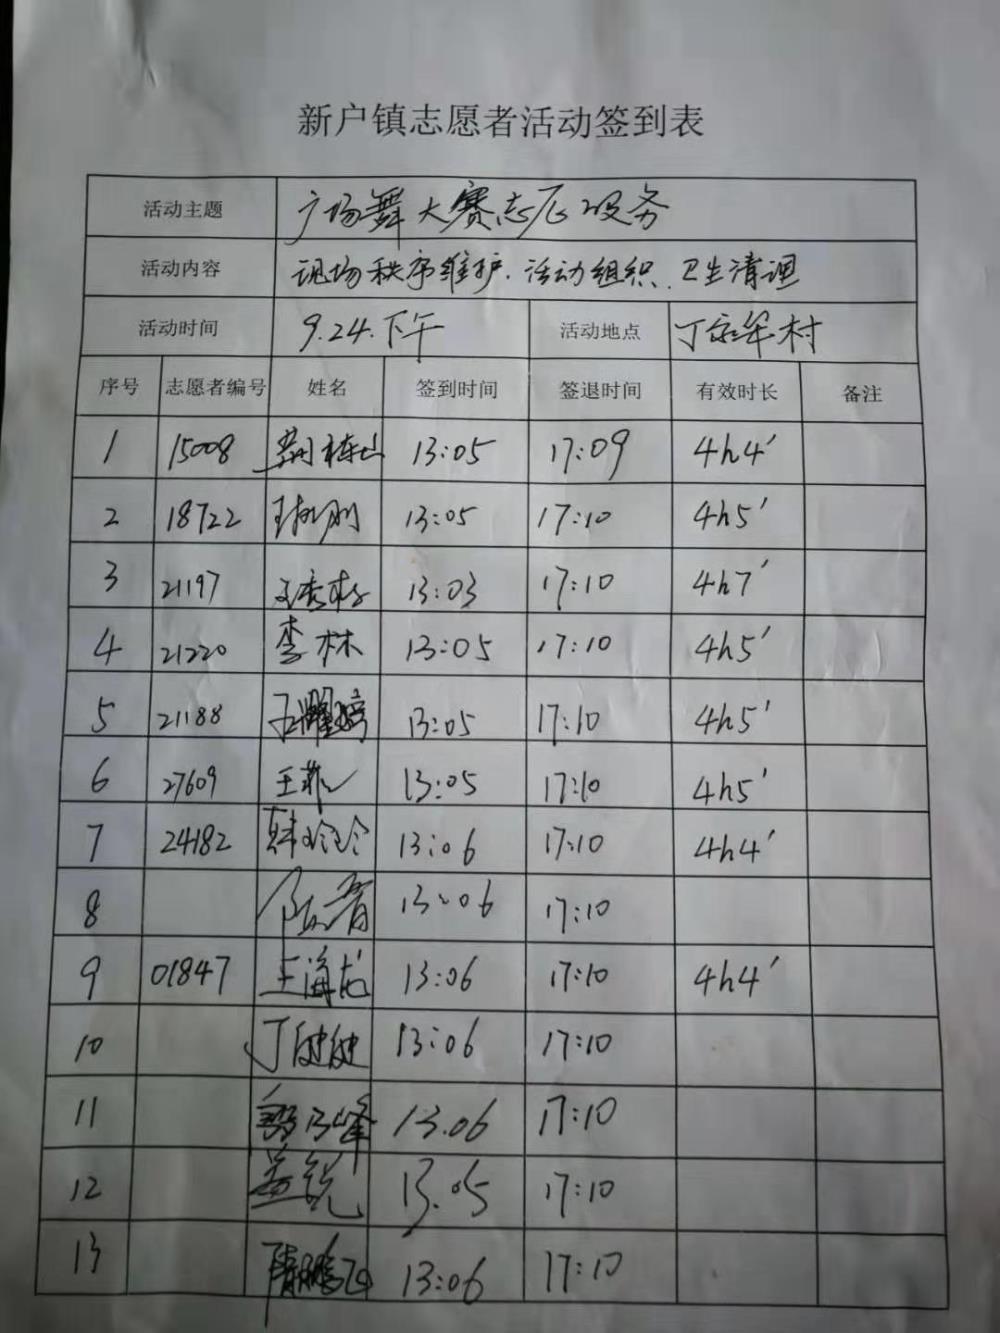 新户镇志愿者活动签到表
活动主题 广场舞大赛志愿服务
活动内容 现场秩序维护、活动组织、卫生清理
活动时间 9.24.下午 活动地点 村
序号 志愿者编号 姓名 签到时间 签退时间 有效时长 备注
1 15008 13:05 17:09 4h4'
2 18722 13:05 17:10 4h5'
3 21197 13:03 17:10 4h7'
4 21220 李林 13:05 17:10 4h5'
5 21188 13:05 17:10 4h5'
6 27609 王菲 13:05 17:10 4h5'
7 24182 韩玲玲 13:06 17:10 4h4'
8 13:06 17:10
9 01847 王海龙 13:06 17:10 4h4'
10 丁健健 13:06 17:10
11 13.06 17:10
12 盖锐 13.05 17:10
13 隋鹏飞 13:06 17:10